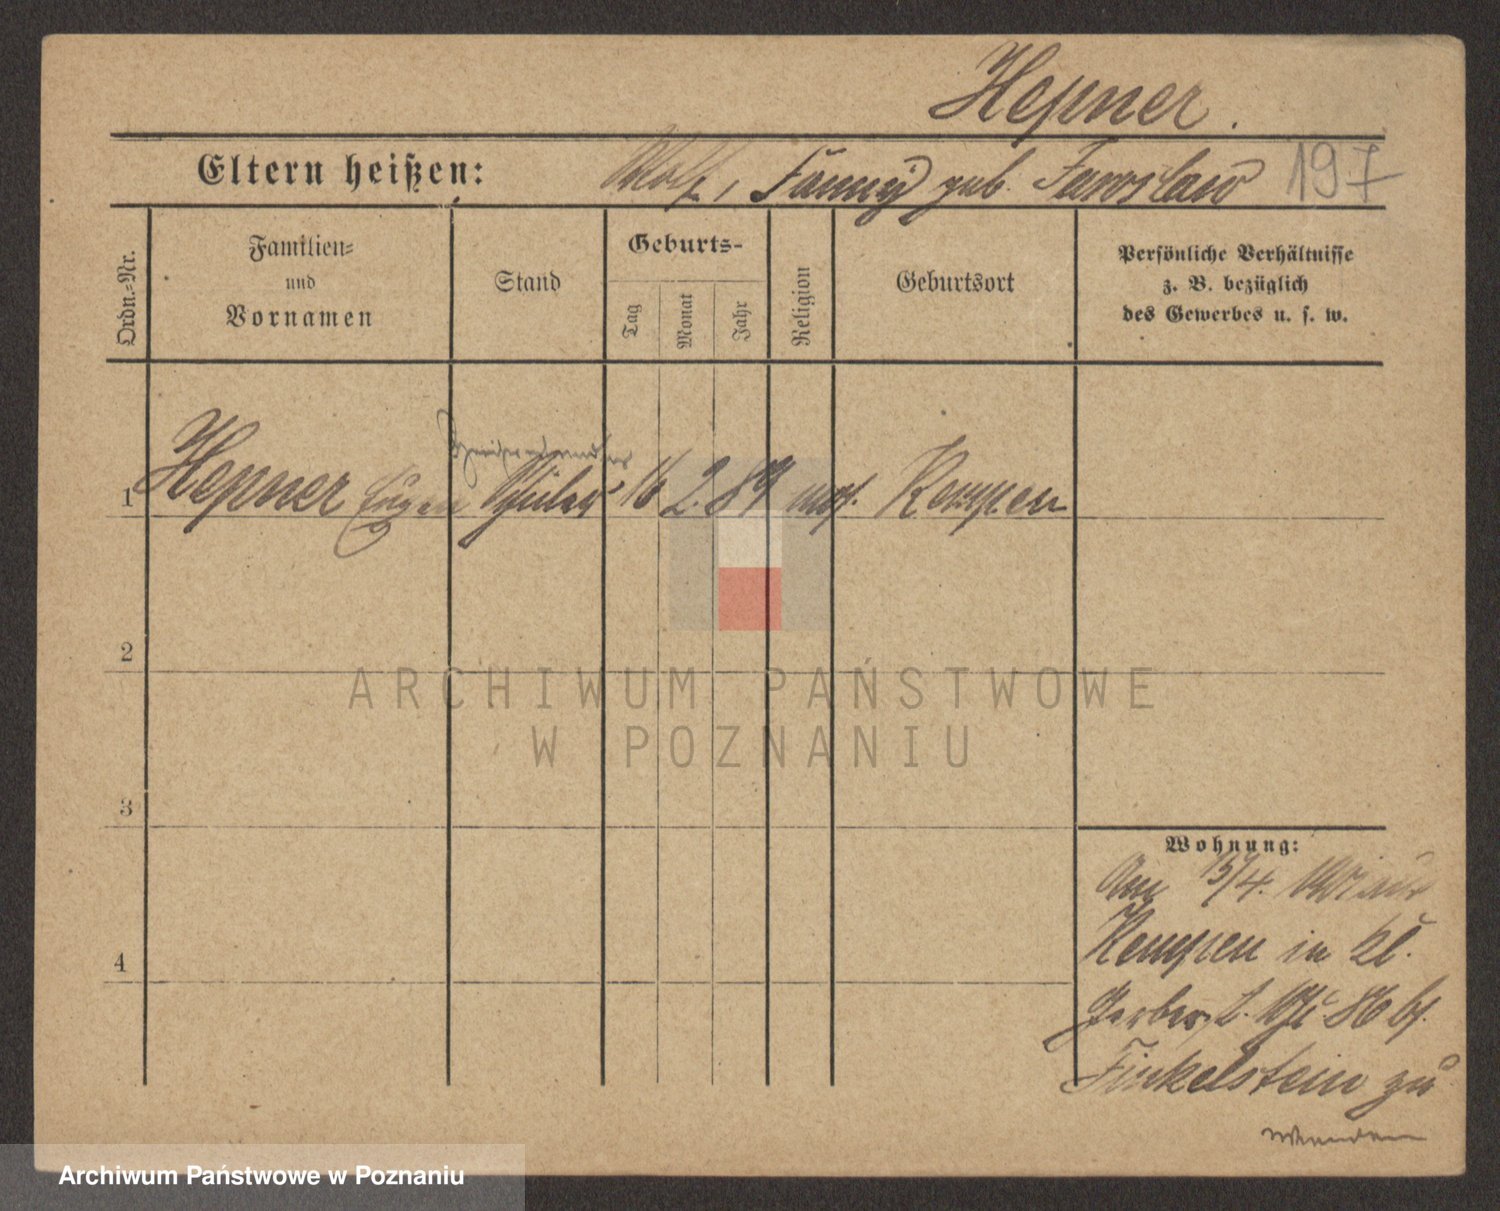 Hepner.
Eltern heißen: Wolf, Fanny geb. Jaroslaw 197
Ordn.-Nr.
Familien-
und
Vornamen
Stand
Geburts-
Tag
Monat
Jahr
Religion
Geburtsort
Persönliche Verhältnisse
z. B. bezüglich
des Gewerbes u. s. w.
1 Hepner Eugen Schüler 16 2. 89 mos. Kempen
2
3
4
Wohnung:
Am 15/4. aus
Kempen in kl.
Gerber 86 bf.
Finkelstein zu
wenden
ARCHIWUM PAŃSTWOWE
W POZNANIU
Archiwum Państwowe w Poznaniu